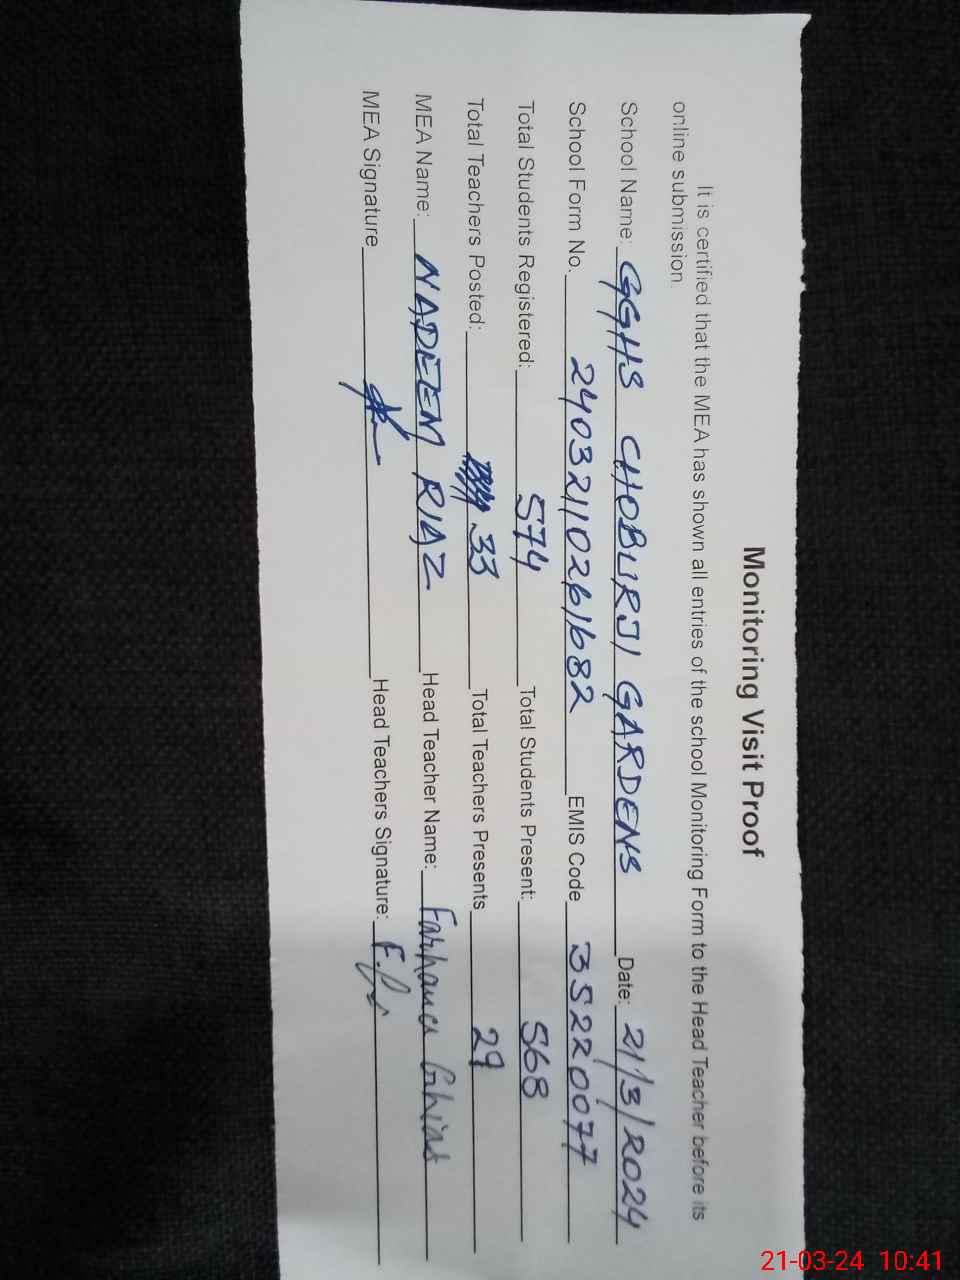 Monitoring Visit Proof
It is certified that the MEA has shown all entries of the school Monitoring Form to the Head Teacher before its
online submission.
School Name: GGHS CHOBURJI GARDENS Date: 21/3/2024
School Form No. 24032110261682 EMIS Code 35220077
Total Students Registered: 574 Total Students Present: 568
Total Teachers Posted: 33 Total Teachers Presents 29
MEA Name: NADEEM RIAZ Head Teacher Name: Farhana Ghias
MEA Signature Head Teachers Signature:
21-03-24 10:41